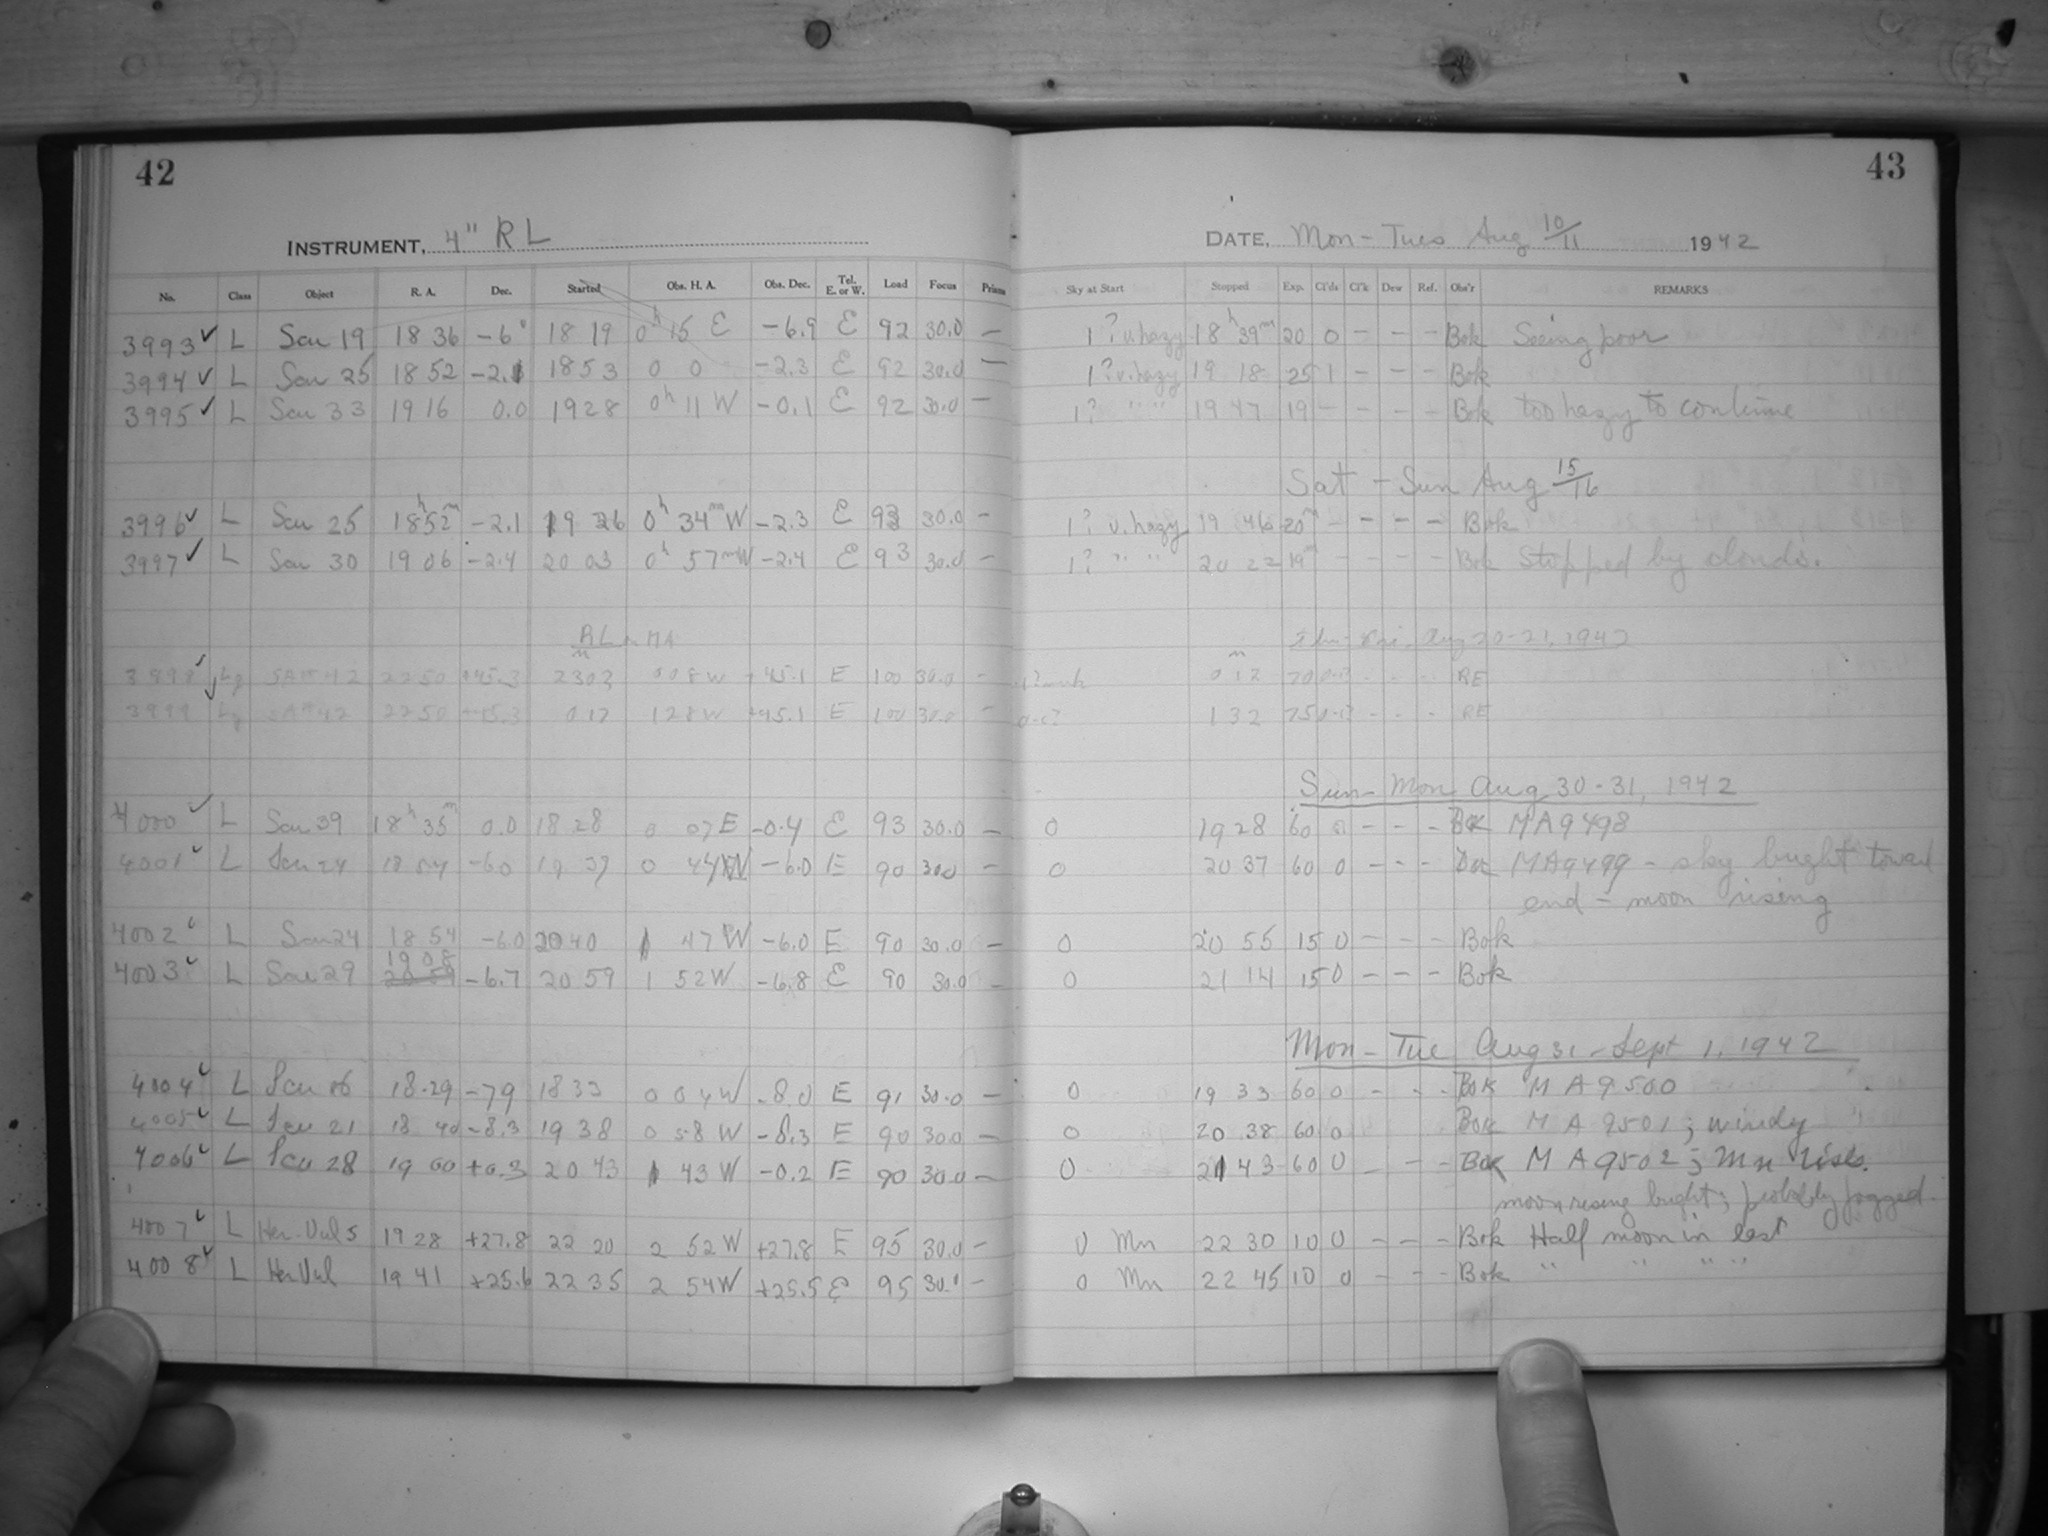 42
43
INSTRUMENT, 4" RL
DATE, Mon - Tues Aug 10/11 1942
No. Class Object R. A. Dec. Started Obs. H. A. Obs. Dec. Tel. E. or W. Load Focus Prism Sky at Start Stopped Exp. Cl'ds Cl'k Dew Ref. Obs'r REMARKS
3993 ✓ L Scu 19 18 36 -6° 18 19 0h 15 E -6.9 E 92 30.0 — 1? v. hazy 18h 39m 20 0 - - - Bok Seeing poor
3994 ✓ L Scu 25 18 52 -2.1 18 53 0 0 -2.3 E 92 30.0 — 1? v. hazy 19 18 25 1 - - - Bok
3995 ✓ L Scu 33 19 16 0.0 19 28 0h 11 W -0.1 E 92 30.0 — 1? " " 19 47 19 - - - - Bok too hazy to continue
Sat - Sun Aug 15/16
3996 ✓ L Scu 25 18h 52m -2.1 19 26 0h 34m W -2.3 E 93 30.0 - 1? v. hazy 19 46 20m - - - - Bok
3997 ✓ L Scu 30 19 06 -2.4 20 03 0h 57m W -2.4 E 93 30.0 - 1? " " 20 22 19m - - - - Bok Stopped by clouds.
RL MA
Thu - Fri. Aug 20-21, 1942
3998 ✓ Lg SA 42 22 50 +45.3 2302 0 08 W +45.1 E 100 30.0 - 0 12 70 - - - RE
3999 Lg SA 42 22 50 +45.3 0 17 1 28 W +45.1 E 100 30.0 - 1 32 75 - - - RE
Sun - Mon Aug 30-31, 1942
4000 ✓ L Scu 39 18h 35m 0.0 18 28 0 07 E -0.4 E 93 30.0 — 0 19 28 60 0 - - - Bok MA9498
4001 ✓ L Scu 24 18 54 -6.0 19 37 0 44 W -6.0 E 90 30.0 — 0 20 37 60 0 - - - Bok MA9499 - sky bright toward
end - moon rising
4002 ✓ L Scu 24 18 54 -6.0 20 40 1 47 W -6.0 E 90 30.0 — 0 20 55 15 0 - - - Bok
4003 ✓ L Scu 29 19 08 -6.7 20 59 1 52 W -6.8 E 90 30.0 — 0 21 14 15 0 - - - Bok
Mon - Tue Aug 31 - Sept 1, 1942
4004 ✓ L Scu 16 18 29 -7.9 18 33 0 04 W -8.0 E 91 30.0 — 0 19 33 60 0 - - - Bok MA9500
4005 ✓ L Scu 21 18 40 -8.3 19 38 0 58 W -8.3 E 90 30.0 — 0 20 38 60 0 Bok MA 9501; windy
4006 ✓ L Scu 28 19 00 +0.3 20 43 1 43 W -0.2 E 90 30.0 — 0 21 43 60 0 - - - Bok MA9502; Mn rises.
moon rising bright; probably fogged
4007 ✓ L Her-Vul 5 19 28 +27.8 22 20 2 52 W +27.8 E 95 30.0 - 0 Mn 22 30 10 0 - - - Bok Half moon in east
4008 ✓ L Her Vul 19 41 +25.6 22 35 2 54 W +25.5 E 95 30.1 - 0 Mn 22 45 10 0 - - - Bok " " " "